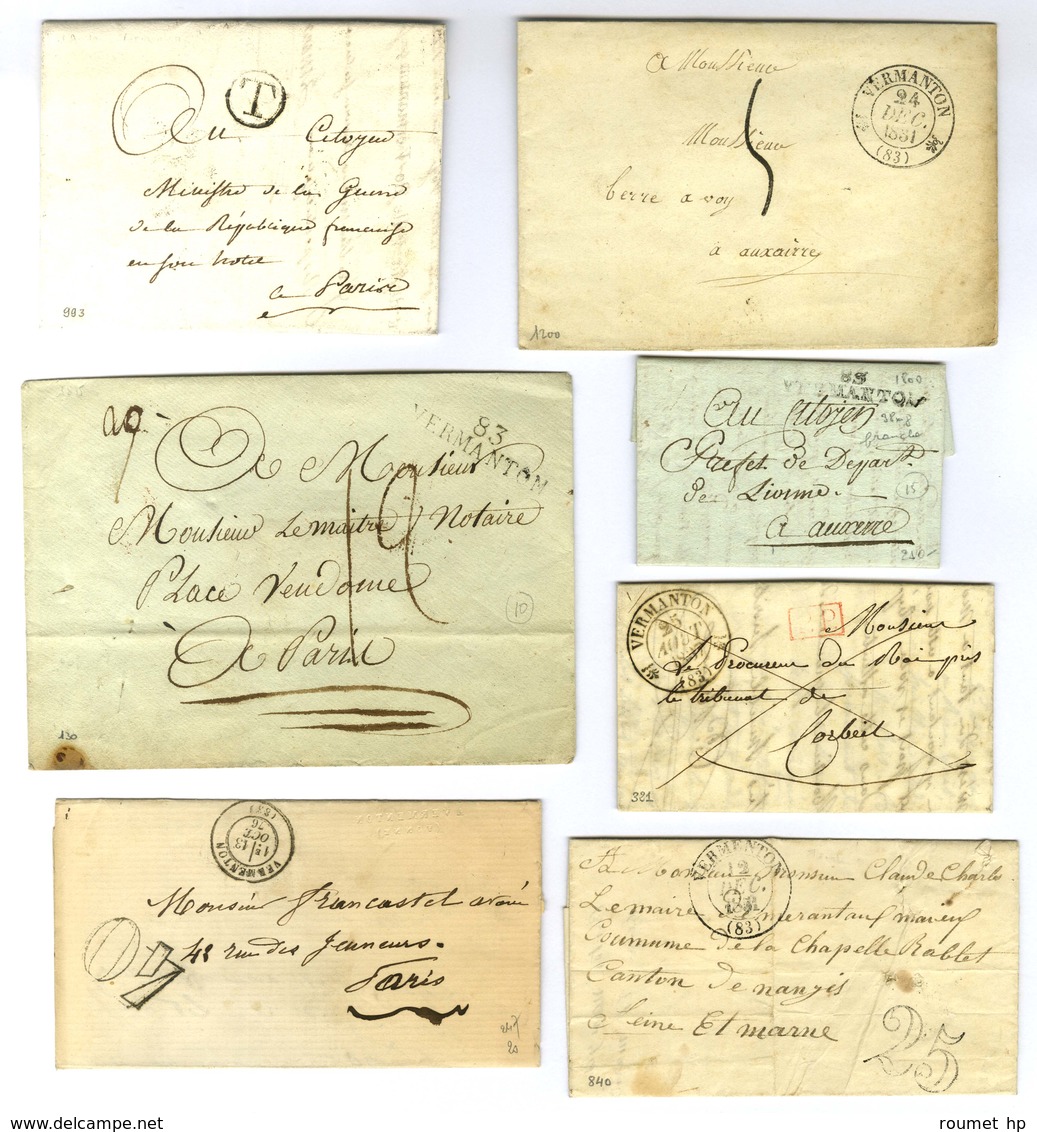 T
Au Citoyen
Ministre de la Guerre
de la République francaise
en son hotel
a Parise
993
a Moussieur
VERMANTON
24
DEC.
1831
(83)
Moussieur
berre a voy
a auxairre
1200
83
VERMANTON
20
A Monsieur
Monsieur Lemaitre Notaire
Place Vendome
A Paris
10
130
1800
VERMANTON
Au Citoyen
Prefet de Depart.t
de Lionne
A auxerre
15
210
VERMANTON
25
AOUT
(83)
PP
Monsieur
le Procureur du Roi près
le tribunal de
Corbeil
381
VERMENTON
1E/13
OCT.
76
(83)
Monsieur Francastel avoué
48 rue des Jeuneurs.
Paris
20
VERMENTON
12
DEC.
(83)
A Monsieur Monsieur Claude Charle
Lemaire
Coumume de la Chapelle Rablet
Canton de nangis
Seine Et marne
25
840
www.delcampe.net
roumet hp